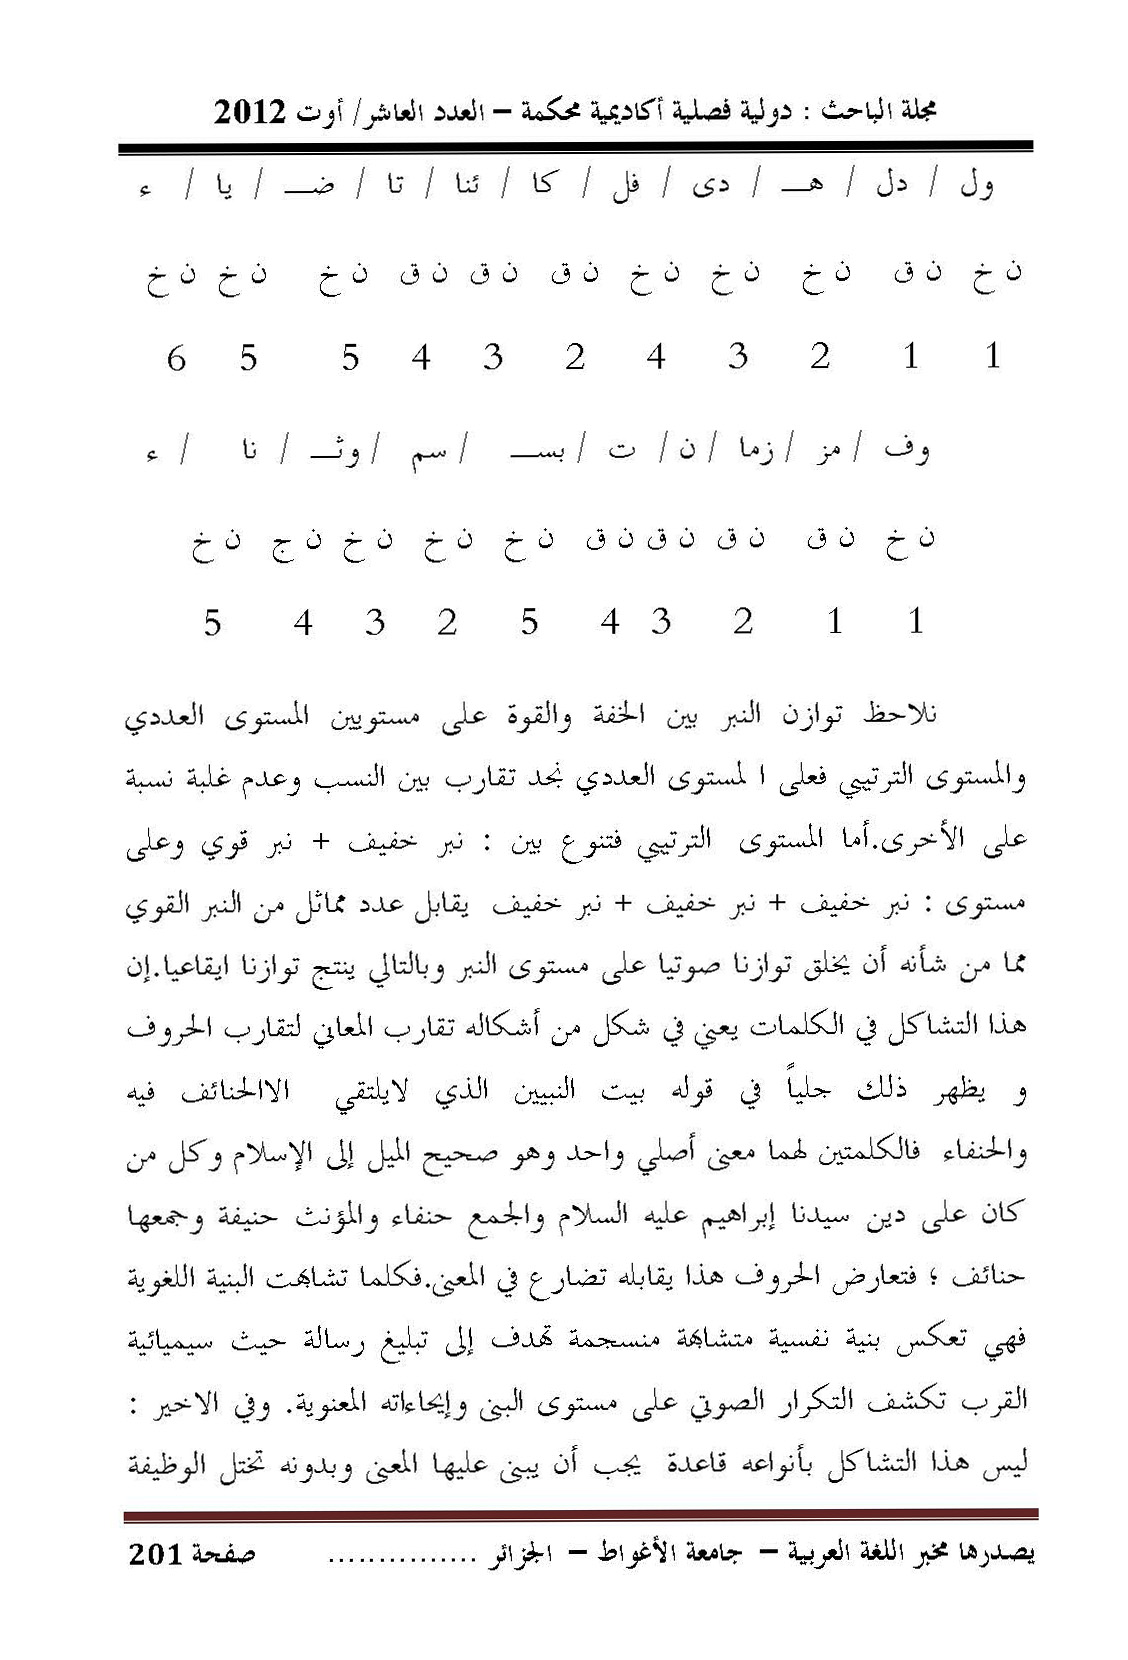 مجلة الباحث : دولية فصلية أكاديمية محكمة – العدد العاشر/ أوت 2012
ول / دل / هـــ / دى / فل / كا / ئنا / تا / ضـــ / يا / ء
ن خ ن ق ن خ ن خ ن خ ن ق ن ق ن ق ن خ ن خ ن خ
1 1 2 3 4 2 3 4 5 5 6
وف / مز / زما / ن / ت / بســـ / سم / وثـــ / نا / ء
ن خ ن ق ن ق ن ق ن ق ن خ ن خ ن خ ن ج ن خ
1 1 2 3 4 5 2 3 4 5
نلاحظ توازن النبر بين الخفة والقوة على مستويين المستوى العددي
والمستوى الترتيبي فعلى ا لمستوى العددي نجد تقارب بين النسب وعدم غلبة نسبة
على الأخرى.أما المستوى الترتيبي فتنوع بين : نبر خفيف + نبر قوي وعلى
مستوى : نبر خفيف + نبر خفيف + نبر خفيف يقابل عدد مماثل من النبر القوي
مما من شأنه أن يخلق توازنا صوتيا على مستوى النبر وبالتالي ينتج توازنا ايقاعيا.إن
هذا التشاكل في الكلمات يعني في شكل من أشكاله تقارب المعاني لتقارب الحروف
و يظهر ذلك جلياً في قوله بيت النبيين الذي لايلتقي الاالحنائف فيه
والحنفاء فالكلمتين لهما معنى أصلي واحد وهو صحيح الميل إلى الإسلام وكل من
كان على دين سيدنا إبراهيم عليه السلام والجمع حنفاء والمؤنث حنيفة وجمعها
حنائف ؛ فتعارض الحروف هذا يقابله تضارع في المعنى.فكلما تشابهت البنية اللغوية
فهي تعكس بنية نفسية متشابهة منسجمة تهدف إلى تبليغ رسالة حيث سيميائية
القرب تكشف التكرار الصوتي على مستوى البنى وإيحاءاته المعنوية. وفي الاخير :
ليس هذا التشاكل بأنواعه قاعدة يجب أن يبنى عليها المعنى وبدونه تختل الوظيفة
يصدرها مخبر اللغة العربية – جامعة الأغواط – الجزائر ............... صفحة 201